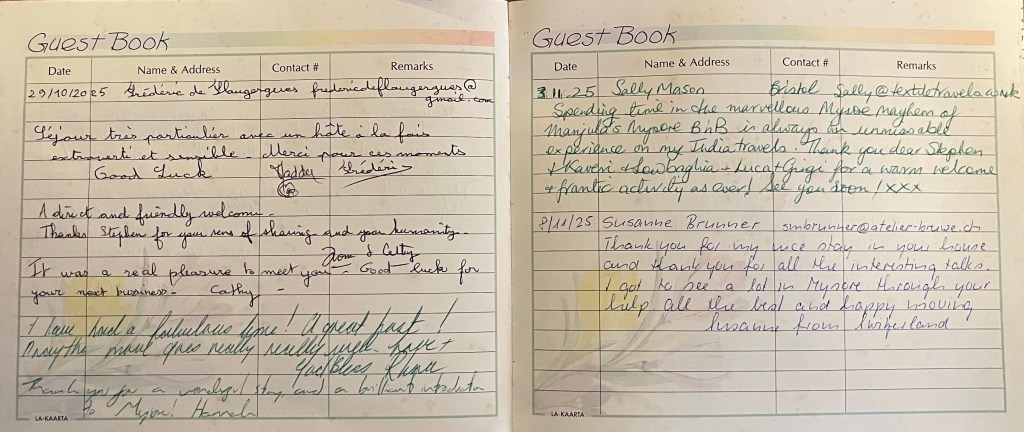 Guest Book
Date Name & Address Contact # Remarks
29/10/2025 Frédéric de Flaugergues fredericdeflaugergues@
gmail.com
Séjour très particulier avec un hôte à la fois
extraverti et sensible. Merci pour ces moments
Good Luck Frédéric
A direct and friendly welcome.
Thanks Stephen for your sens of sharing and your humanity.
From Cathy
It was a real pleasure to meet you. Good luck for
your next business. Cathy
I have had a fabulous time! A great host!
the move goes really really well.
God Bless
Thank you for a wonderful stay, and a brilliant introduction
to Mysore! Hannah
LA-KAARTA
Guest Book
Date Name & Address Contact # Remarks
3.11.25 Sally Mason Bristol
Spending time in the marvellous Mysore mayhem of
Manjula's Mysore BnB is always an unmissable
experience on my India travels. Thank you dear Stephen
+ Kaveri + + Luca + for a warm welcome
+ frantic activity as ever! See you soon! xxx
8/11/25 Susanne Brunner smbrunner@atelier-bruwe.ch
Thank you for my nice stay in your house
and thank you for all the interesting talks.
I got to see a lot in Mysore through your
help all the best and happy moving
Susanne from Switzerland
LA-KAARTA